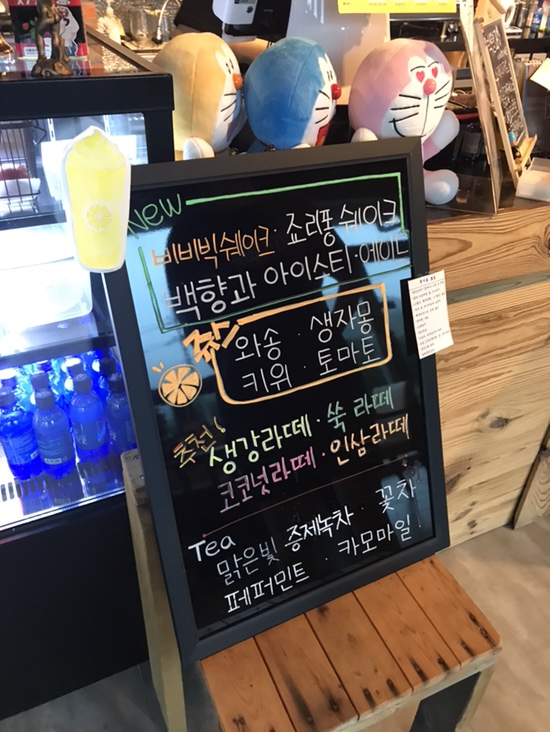 New
비비빅쉐이크 · 죠리퐁쉐이크
백향과 아이스티 · 에이드
쥬스
와송 · 생자몽
키위 · 토마토
추천!
생강라떼 · 쑥 라떼
코코넛라떼 · 인삼라떼
Tea
맑은빛 증제녹차 · 꽃차
페퍼민트 · 카모마일